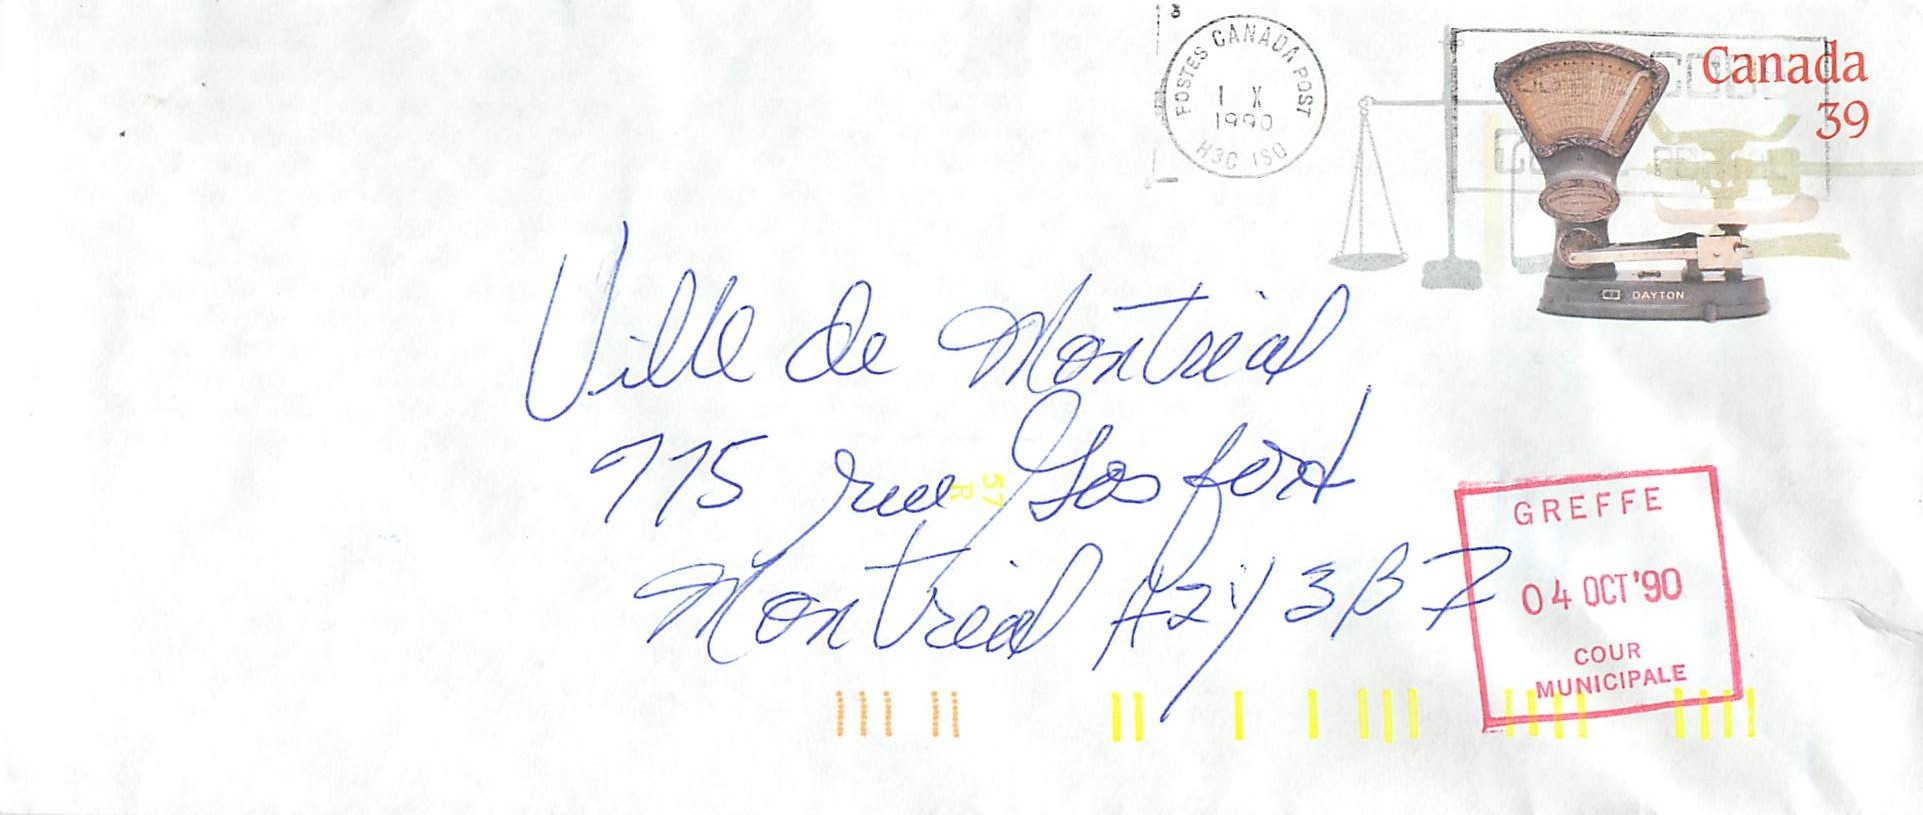 POSTES CANADA POST
I X
1990
H3C 1S0
Canada
39
DAYTON
Ville de Montreal
775 rue Gosford
Montreal H2Y 3B7
57
R
GREFFE
04 OCT '90
COUR
MUNICIPALE